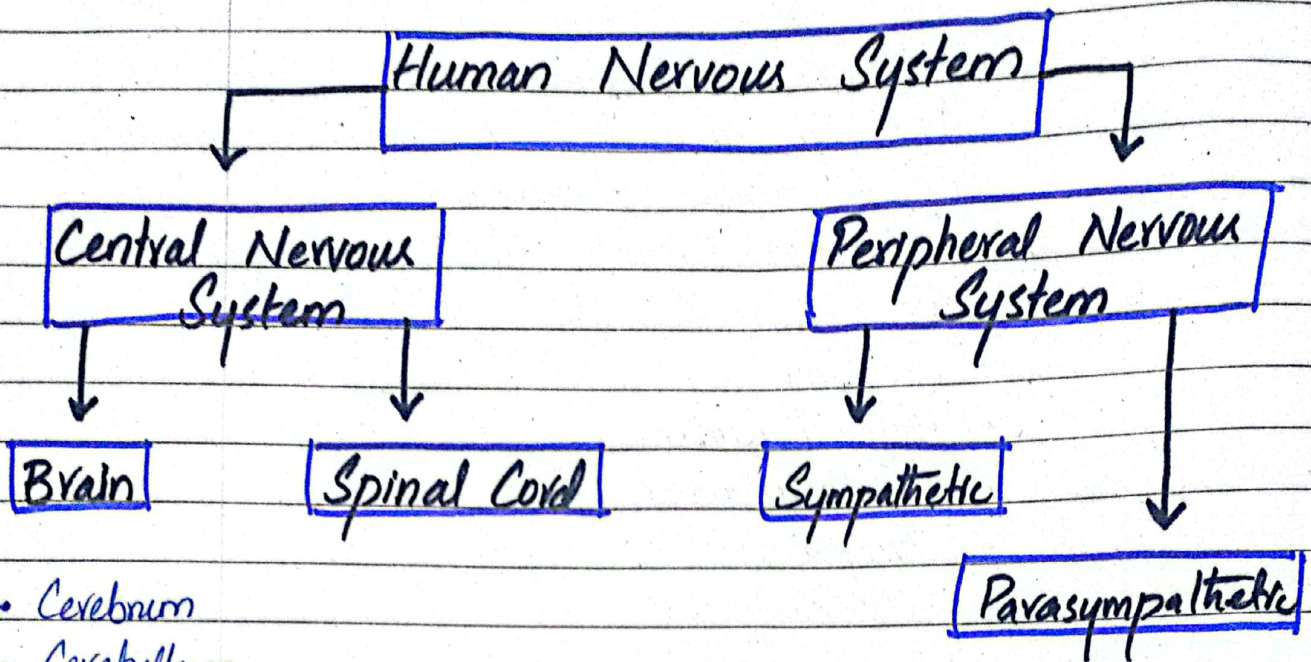 Human Nervous System
Central Nervous
System
Peripheral Nervous
System
Brain
Spinal Cord
Sympathetic
Parasympathetic
• Cerebrum